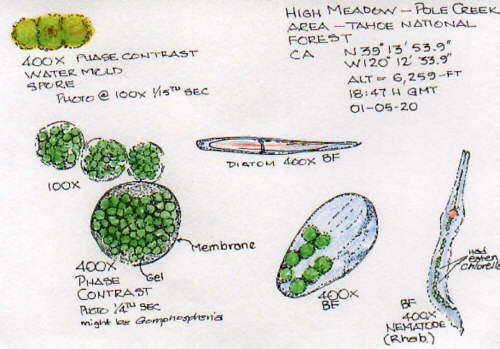 HIGH MEADOW - POLE CREEK
AREA - TAHOE NATIONAL
FOREST
CA N 39° 13' 53.9"
W 120° 12' 33.9"
ALT = 6,259-FT
18:47 H GMT
01-05-20
400X PHASE CONTRAST
WATER MOLD
SPORE
PHOTO @ 100X 1/15TH SEC
100X
DIATOM 400X BF
Membrane
Gel
400X
PHASE
CONTRAST
PHOTO 1/4TH SEC
might be Gomphospheria
400X
BF
Had
eaten
Chlorella
BF
400X
NEMATODE
(Rhab.)